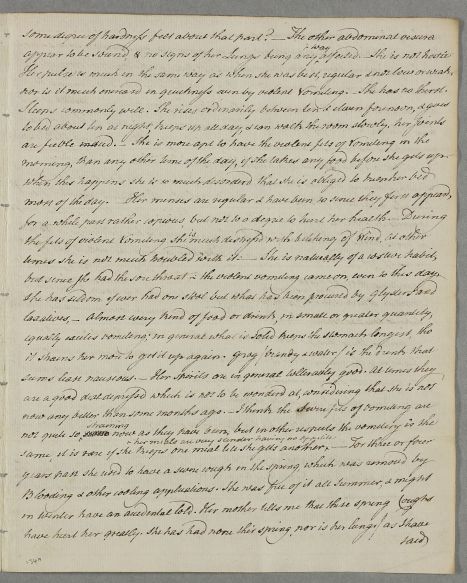 some degree of hardness feel about that part? — The other abdominal viscera
appear to be sound & no signs of her Lungs being any way affected. She is not hectic
Her pulse is much in the same way as when she was best, regular & not low or weak,
nor is it much increased in quickness even by violent Vomiting. She has no thirst.
Sleeps commonly well. She rises ordinarily between ten & eleven forenoon, & goes
to bed about ten at night, keeps up all day, & can walk the room slowly, her Joints
are feeble indeed. — She is more apt to have the violent fits of Vomiting in the
morning, than any other time of the day, if she takes any food before she gets up —
when this happens she is so much disordered that she is obliged to keep her bed
most of the day. — Her menses are regular & have been so since they first appeared,
for a while past rather copious but not to a degree to hurt her health — During
the fits of violent Vomiting she is much distressed with belching of Wind, at other
times she is not much troubled with it. — She is naturally of a costive habit,
but since she had the sore throat & the violent vomiting came on, even to this day
she has seldom if ever had one stool but what has been procured by Glysters and
laxatives. — Almost every kind of food or drink, in small or greater quantity,
equally excites vomiting; in general what is solid keeps the stomach longest, tho
it strains her more to get it up again. Grog (brandy & water) is the drink that
seems least nauseous. — Her Spirits are in general tollerably good. At times they
are a good deal depressed which is not to be wonder'd at, considering that she is not
now any better than some months ago. — I think the severe fits of vomiting are
not quite so straining now as they have been, but in other respects the vomiting is the
same, it is rare if she keeps one meal till she gets another, — her meals are very slender having no appetite. For three or four
years past she used to have a severe cough in the spring which was removed by
Bleeding & other cooling applications. She was free of it all Summer, & might
in Winter have an accidental Cold. Her mother tells me that these spring Coughs
have hurt her greatly. She has had none this spring, nor is her lungs, as I have
said,